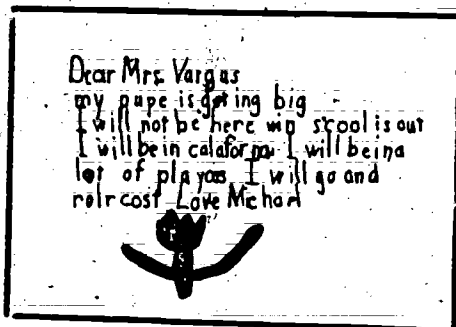 Dear Mrs. Vargas
my pupe is geting big
I will not be here win scool is out
I will be in calaforna I will be ina
lot of playoes I will go and
rolrcost Love Michael